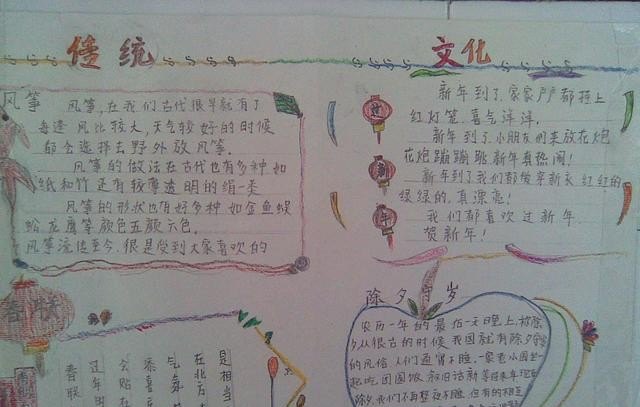 传统 文化
风筝
风筝,在我们古代很早就有了
每逢风比较大,天气较好的时候
都会选择去野外放风筝.
风筝的做法在古代也有多种如
纸和竹还有较薄透明的绢一类
风筝的形状也有好多种如金鱼蜈
蚣龙鹰等颜色五颜六色.
风筝流传至今.很是受到大家喜欢的
新年到了,家家户户都挂上
红灯笼.喜气洋洋.
新年到了.小朋友们来放花炮
花炮蹦蹦跳新年真热闹!
新年到了我们都爱穿新衣红红的
绿绿的.真漂亮!
我们都喜欢过新年
贺新年!
过
新
年
春联
是相当
在北方
气氛
添喜
会贴
过年
春联
除夕守岁
农历一年的最后一天晚上,被称除
夕从很古的时候我国就有除夕守岁
的风俗人们通宵不睡.一家老小围坐一
起吃团圆饭叙旧话新等待来年
除夕我们不再整夜不睡但有的